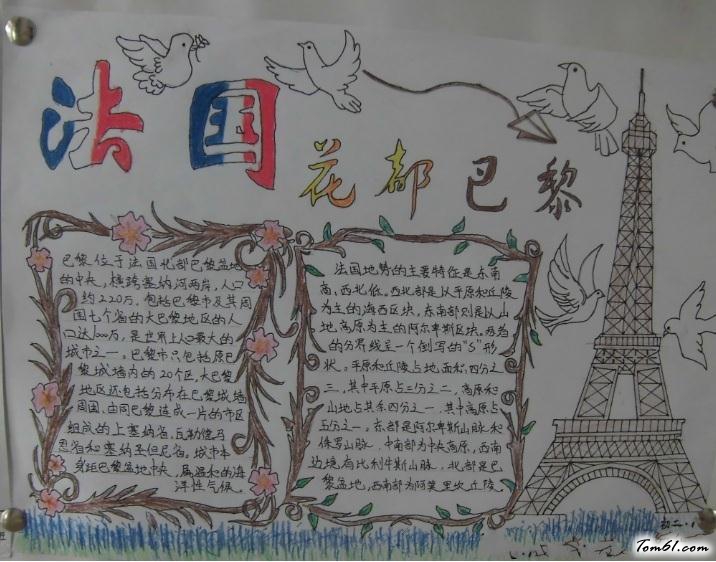 法国
花都巴黎
巴黎位于法国北部巴黎盆地
的中央,横跨塞纳河两岸,人口
约220万.包括巴黎市及其周
围七个省的大巴黎地区的人
口达1000万,是世界上人口最大的
城市之一。巴黎市只包括原巴
黎城墙内的20个区,大巴黎
地区还包括分布在巴黎城墙
周围,由同巴黎连成一片的市区
组成的上塞纳省,瓦勒德马
恩省和塞纳圣但尼省。城市本
身踞巴黎盆地中央,属温和的海
洋性气候。
法国地势的主要特征是东南
高,西北低。西北部是以平原和丘陵
为主的海西区块,东南部则是以山
地,高原为主的阿尔卑斯区块。两者
的分界线呈一个倒写的"S"形
状。平原和丘陵占地面积,四分之
三,其中平原占三分之二,高原和
山地占其余四分之一,其中高原占
五分之一,东部是阿尔卑斯山脉和
侏罗山脉,中南部为中央高原,西南
边境有比利牛斯山脉,北部是巴
黎盆地,西南部为阿基里坎丘陵。
初二·1
Tom61.com